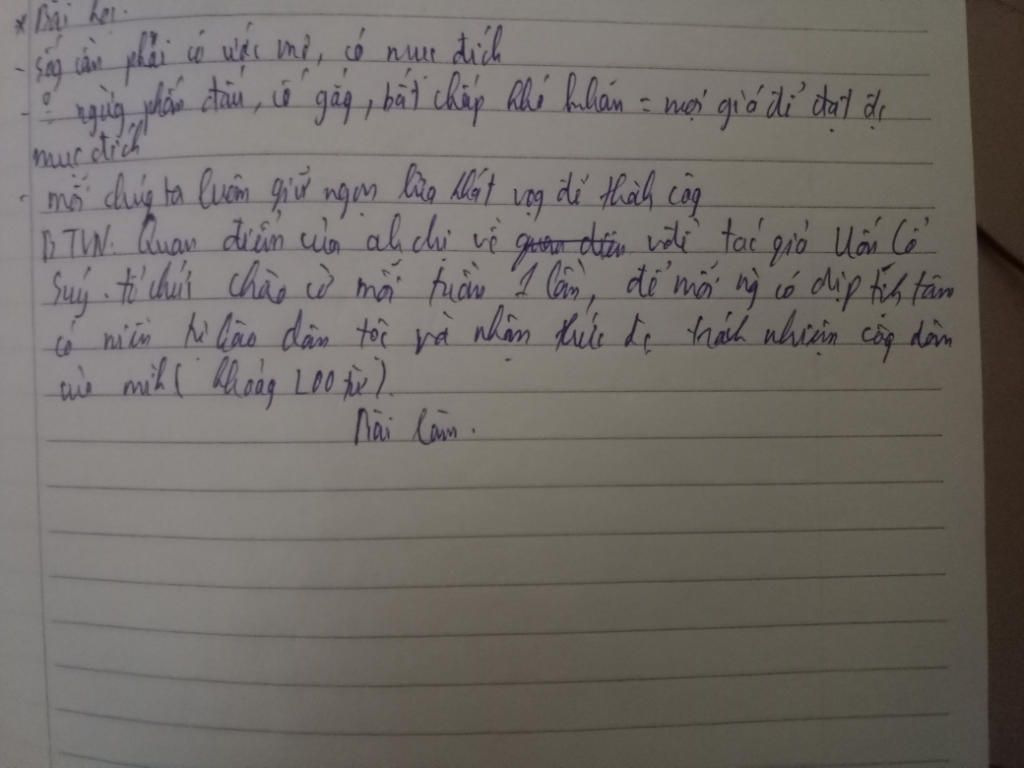 * Bài học.
- sốg cần phải có ước mơ, có mục đích
- o ngừg phấn đấu, cố gắg, bất chấp khó khăn = mọi giá để đạt đc
mục đích
- mỗi chúg ta luôn giữ ngọn lửa khát vọg để thàh côg
BTVN: Quan điểm của ah chị về quan điểm vđề tác giả
Suý. tổ chức chào cờ mỗi tuần 1 lần, để mỗi ng có dịp
có niềm tự hào dân tộc và nhận thức đc trách nhiệm côg dân
của mìh ( khoảg 200 từ).
Bài làm.